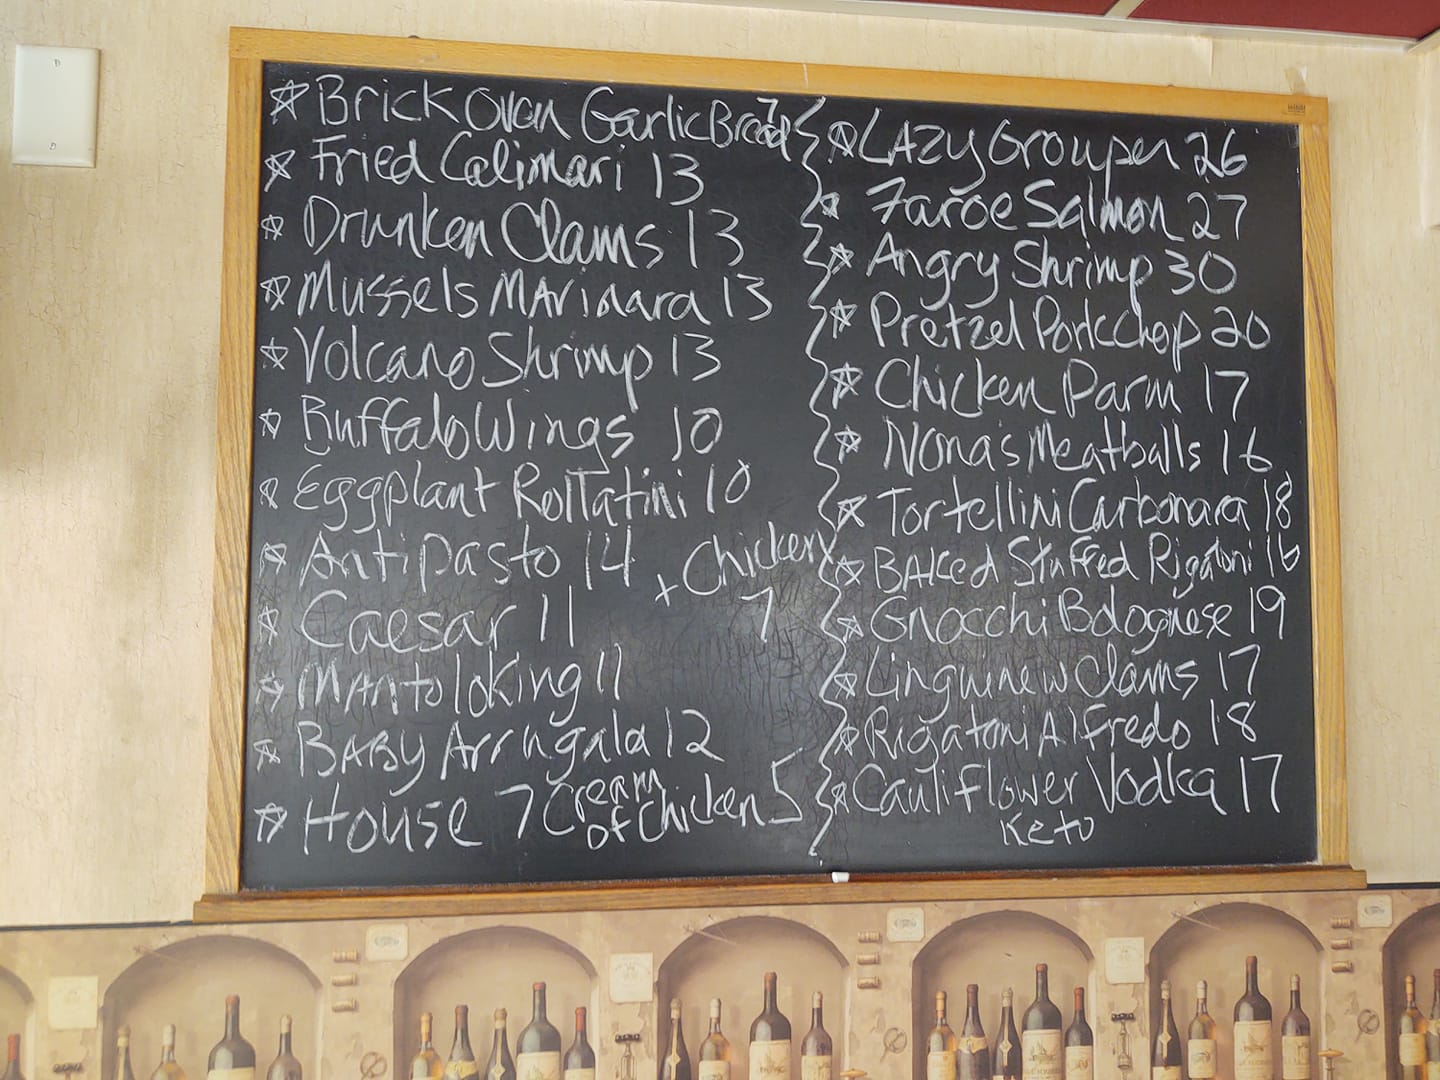 Brick Oven Garlic Bread 7
Fried Calimari 13
Drunken Clams 13
Mussels Marinara 13
Volcano Shrimp 13
Buffalo Wings 10
Eggplant Rollatini 10
Antipasto 14
+ Chicken 7
Caesar 11
Mantoloking 11
Baby Arrugala 12
House 7 Cream of Chicken 5
LAzy Groupen 26
Faroe Salmon 27
Angry Shrimp 30
Pretzel Porkchop 20
Chicken Parm 17
Nona's Meatballs 16
Tortellini Carbonara 18
BAked Stuffed Rigatoni 16
Gnocchi Bolognese 19
Linguine w Clams 17
Rigatoni Alfredo 18
Cauliflower Vodka 17
Keto